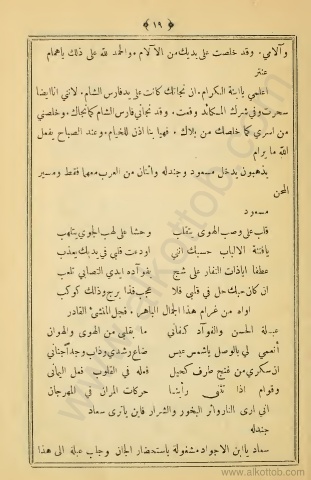 ﴿ ١٩ ﴾
وآلامي. وقد خلصت على يديك من الآلام والحمد لله على ذلك ياهمام
عنتر
اعلمي يا ابنة الكرام. ان نجاتك كانت على يد فارس الشام. لانني انا ايضا
سحرت وفي شرك المكائد وقعت. وقد نجاني فارس الشام كما نجاك. وخلصني
من اسري كما خلصك من بلاك. فهيا بنا اذن للخيام. وعند الصباح يفعل
الله ما يرام
يذهبون يدخل مسعود وجندله واثنان من العرب معهما فقط ومسير
المحن
مسعود
قلب على وصب الهوى يتقلب وحشا على لهب الجوي يتلهب
يا فتنة الالباب حسبك انني اودعت قلبي في يديك يعذب
عطفا اباذات النفار على شج بفوآده ايدي التصابي تلعب
ان كان حبك حل في قلبي فلا عجب فذا برج وذلك كوكب
اواه من غرام هذا الجمال الباهر. فجل المنشئ القادر
عبلة الحسن والفوآد كفاني ما بقلبي من الهوى والهوان
أنعمي لي بالوصل يا شمس عبس ضاع رشدي وذاب وجداً جناني
ان سكري من فنج طرف كحيل فعله في القلوب فعل اليماني
وقوام اذا تثنى رأيتنا حركات المران في المهرجان
اني ارى النار وائر البخور والشرار فاين ياترى سعاد
جندله
سعاد يا ابن الاجواد مشغولة باستحضار الجان وجاب عبلة الى هذا
www.alkottob.com
www.alkottob.com